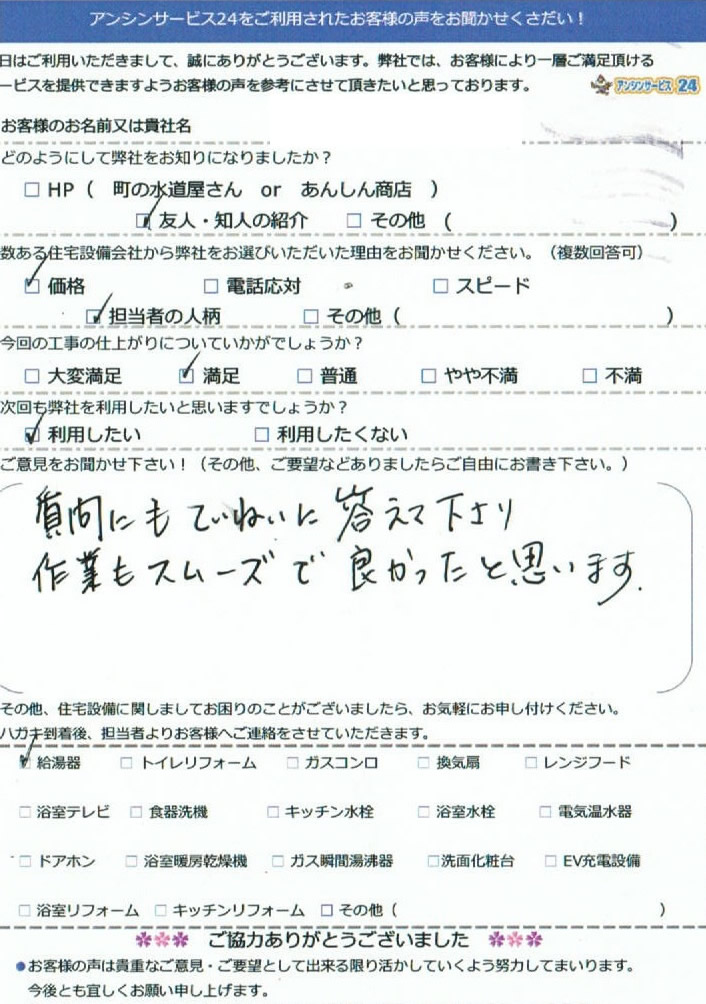 アンシンサービス24をご利用されたお客様の声をお聞かせくさだい！
日はご利用いただきまして、誠にありがとうございます。弊社では、お客様により一層ご満足頂ける
ービスを提供できますようお客様の声を参考にさせて頂きたいと思っております。
アンシンサービス 24
お客様のお名前又は貴社名
どのようにして弊社をお知りになりましたか？
□ HP（ 町の水道屋さん or あんしん商店 ）
☑ 友人・知人の紹介 □ その他 （ ）
数ある住宅設備会社から弊社をお選びいただいた理由をお聞かせください。（複数回答可）
☑ 価格 □ 電話応対 □ スピード
☑ 担当者の人柄 □ その他（ ）
今回の工事の仕上がりについていかがでしょうか？
□ 大変満足 ☑ 満足 □ 普通 □ やや不満 □ 不満
次回も弊社を利用したいと思いますでしょうか？
☑ 利用したい □ 利用したくない
ご意見をお聞かせ下さい！（その他、ご要望などありましたらご自由にお書き下さい。）
質問にもていねいに答えて下さり
作業もスムーズで良かったと思います.
その他、住宅設備に関しましてお困りのことがございましたら、お気軽にお申し付けください。
ハガキ到着後、担当者よりお客様へご連絡をさせていただきます。
☑ 給湯器 □ トイレリフォーム □ ガスコンロ □ 換気扇 □ レンジフード
□ 浴室テレビ □ 食器洗機 □ キッチン水栓 □ 浴室水栓 □ 電気温水器
□ ドアホン □ 浴室暖房乾燥機 □ ガス瞬間湯沸器 □ 洗面化粧台 □ EV充電設備
□ 浴室リフォーム □ キッチンリフォーム □ その他（ ）
ご協力ありがとうございました
●お客様の声は貴重なご意見・ご要望として出来る限り活かしていくよう努力してまいります。
今後とも宜しくお願い申し上げます。